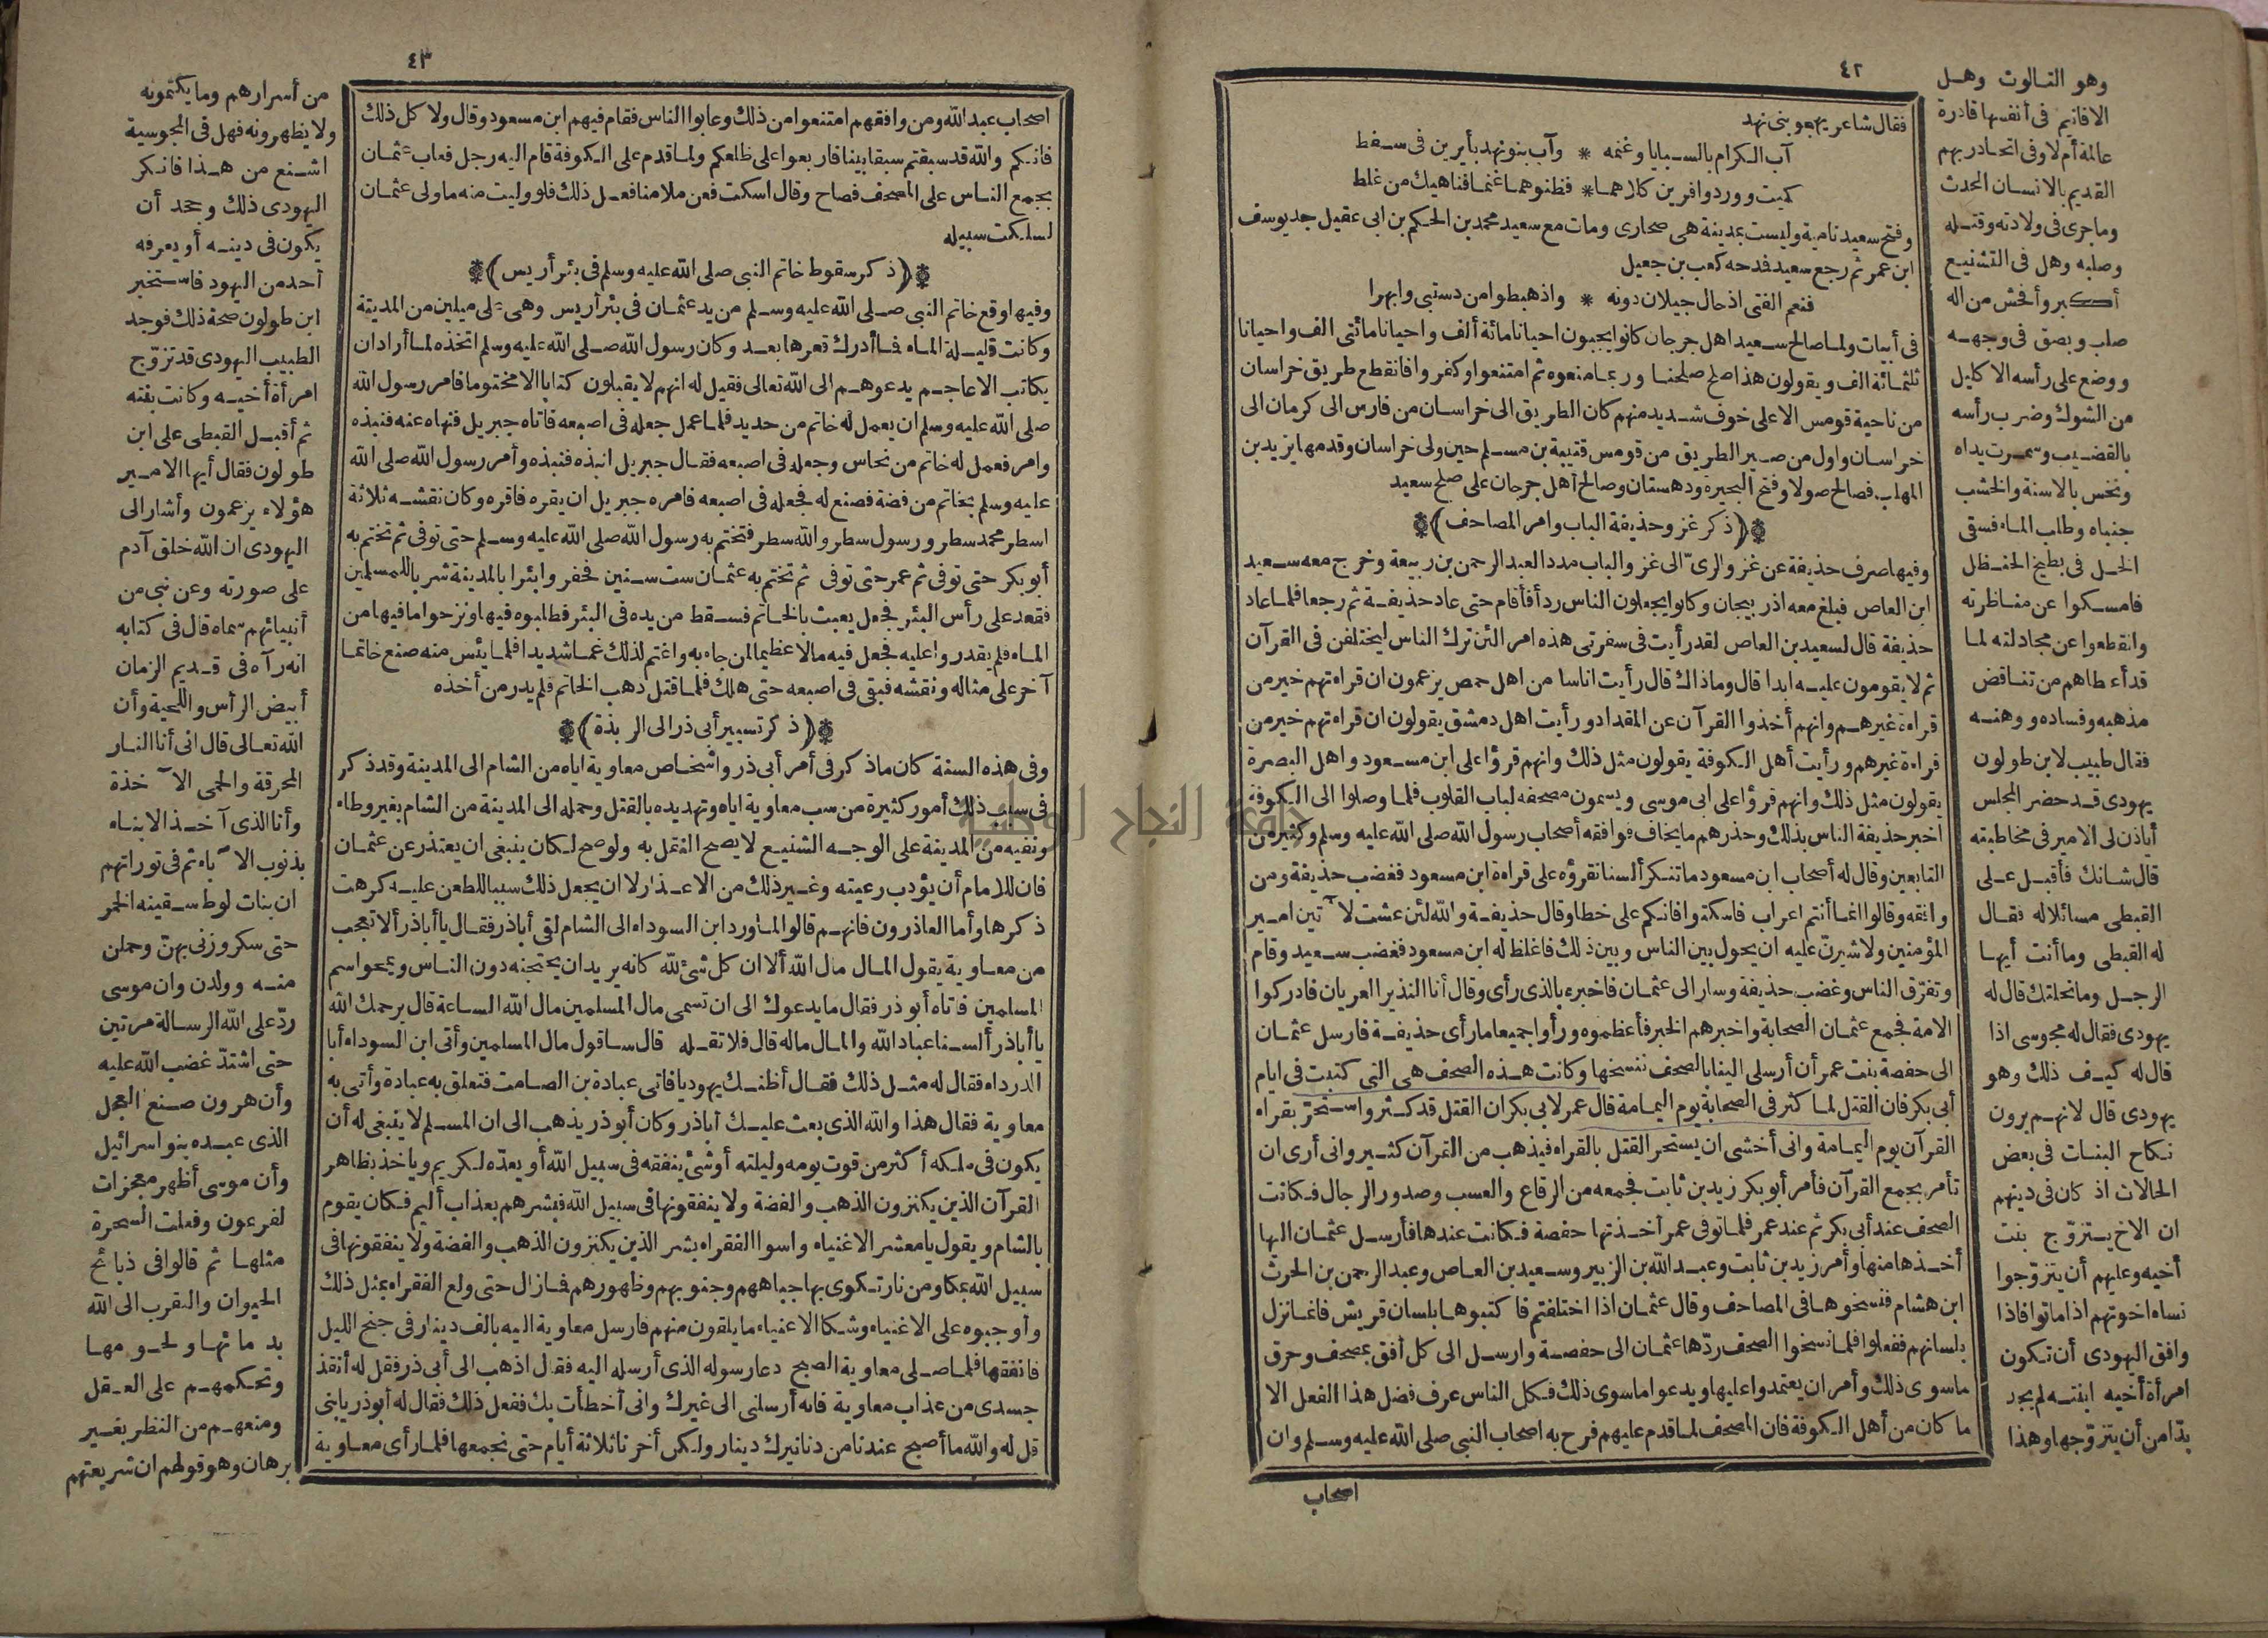 ٤٢
فقال شاعر يهجو بنى نهد
آب الكرام بالسبايا وغنمه * وآب بنو نهد بأيرين فى سفط
كميت وورد وافرين كلاهما * فظنوهما غنما فناهيك من غلط
وفتح سعيد نامية وليست بمدينة هى صحارى ومات مع سعيد محمد بن الحكم بن ابى عقيل جد يوسف
ابن عمر ثم رجع سعيد فدحه كعب بن جعيل
فنعم الفتى اذ حال جيلان دونه * واذ هبطوا من دستبى وابهرا
فى أبيات ولما صالح سعيد اهل جرجان كانوا يجبون احيانا مائة ألف واحيانا مائتى الف واحيانا
ثلثمائة الف ويقولون هذا صلح صلحنا وربما منعوه ثم امتنعوا وكفروا فانقطع طريق خراسان
من ناحية قومس الا على خوف شديد منهم كان الطريق الى خراسان من فارس الى كرمان الى
خراسان واول من صير الطريق من قومس قتيبة بن مسلم حين ولى خراسان وقدمها يزيد بن
المهلب فصالح صولا وفتح البحيرة ودهستان وصالح أهل جرجان على صلح سعيد
(ذكر غزو حذيفة الباب وامر المصاحف)
وفيها صرف حذيفة عن غزو الرىّ الى غزو الباب مددا لعبد الرحمن بن ربيعة وخرج معه سعيد
ابن العاص فبلغ معه اذربيجان وكانوا يجعلون الناس ردأ فأقام حتى عاد حذيفة ثم رجعا فلما عاد
حذيفة قال لسعيد بن العاص لقد رأيت فى سفرتى هذه امر الئن ترك الناس ليختلفن فى القرآن
ثم لا يقومون عليه ابدا قال وما ذاك قال رأيت اناسا من اهل حمص يزعمون ان قراءتهم خير من
قراءة غيرهم وانهم أخذوا القرآن عن المقداد ورأيت اهل دمشق يقولون ان قراءتهم خير من
قراءة غيرهم ورأيت أهل الكوفة يقولون مثل ذلك وانهم قرؤا على ابن مسعود واهل البصرة
يقولون مثل ذلك وانهم قرؤا على ابى موسى ويسمون مصحفه لباب القلوب فلما وصلوا الى الكوفة
اخبر حذيفة الناس بذلك وحذرهم ما يخاف فوافقه أصحاب رسول الله صلى الله عليه وسلم وكثير من
التابعين وقال له أصحاب ابن مسعود ما تنكر ألسنا نقرؤه على قراءة ابن مسعود فغضب حذيفة ومن
وافقه وقالوا انما أنتم اعراب فاسكتوا فانكم على خطا وقال حذيفة والله لئن عشت لآتين امير
المؤمنين ولاشيرنّ عليه ان يحول بين الناس وبين ذلك فاغلظ له ابن مسعود فغضب سعيد وقام
وتفرّق الناس وغضب حذيفة وسار الى عثمان فاخبره بالذى رأى وقال أنا النذير العريان فادركوا
الامة فجمع عثمان الصحابة واخبرهم الخبر فأعظموه ورأوا جميعا ما رأى حذيفة فارسل عثمان
الى حفصة بنت عمر أن أرسلى الينا بالصحف ننسخها وكانت هذه الصحف هى التى كتبت فى ايام
أبى بكر فان القتل لما كثر فى الصحابة يوم اليمامة قال عمر لابى بكر ان القتل قد كثر واستحرّ بقراء
القرآن يوم اليمامة وانى أخشى ان يستحر القتل بالقراء فيذهب من القرآن كثير وانى أرى ان
تأمر بجمع القرآن فأمر أبو بكر زيد بن ثابت فجمعه من الرقاع والعسب وصدور الرجال فكانت
الصحف عند أبى بكر ثم عند عمر فلما توفى عمر أخذتها حفصة فكانت عندها فأرسل عثمان اليها
أخذها منها وأمر زيد بن ثابت وعبد الله بن الزبير وسعيد بن العاص وعبد الرحمن بن الحرث
ابن هشام فنسخوها فى المصاحف وقال عثمان اذا اختلفتم فاكتبوها بلسان قريش فانما نزل
بلسانهم ففعلوا فلما نسخوا الصحف ردّها عثمان الى حفصة وارسل الى كل أفق بمصحف وحرق
ما سوى ذلك وأمر ان يعتمدوا عليها ويدعوا ما سوى ذلك فكل الناس عرف فضل هذا الفعل الا
ما كان من أهل الكوفة فان المصحف لما قدم عليهم فرح به اصحاب النبى صلى الله عليه وسلم وان
اصحاب
وهو الثالوث وهل
الاقانيم فى أنفسها قادرة
عالمة أم لا وفى اتحاد ربهم
القديم بالانسان المحدث
وما جرى فى ولادته وقتله
وصلبه وهل فى التشنيع
أكبر وأفحش من اله
صلب وبصق فى وجهه
ووضع على رأسه الاكليل
من الشوك وضرب رأسه
بالقضيب وسمرت يداه
ونخس بالاسنة والخشب
جنباه وطلب الماء فسقى
الخل فى بطيخ الحنظل
فامسكوا عن مناظرته
وانقطعوا عن مجادلته لما
قد أعطاهم من تناقض
مذهبه وفساده ووهنه
فقال طبيب لابن طولون
يهودى قد حضر المجلس
أياذن لى الامير فى مخاطبته
قال شانك فأقبل على
القبطى مسائلا له فقال
له القبطى وما أنت أيها
الرجل وما نحلتك قال له
يهودى فقال له مجوسى اذا
قال له كيف ذلك وهو
يهودى قال لانهم يرون
نكاح البنات فى بعض
الحالات اذ كان فى دينهم
ان الاخ يتزوّج بنت
أخيه وعليهم أن يتزوّجوا
نساء اخوتهم اذا ماتوا فاذا
وافق اليهودى أن تكون
امرأة أخيه ابنته لم يجد
بدّا من أن يتزوّجها وهذا
٤٣
اصحاب عبد الله ومن وافقهم امتنعوا من ذلك وعابوا الناس فقام فيهم ابن مسعود وقال ولا كل ذلك
فانكم والله قد سبقتم سبقا بينا فاربعوا على ظلعكم ولما قدم على الكوفة قام اليه رجل فعاب عثمان
بجمع الناس على المصحف فصاح وقال اسكت فعن ملا منا فعل ذلك فلو وليت منه ما ولى عثمان
لسلكت سبيله
(ذكر سقوط خاتم النبى صلى الله عليه وسلم فى بئر أريس)
وفيها وقع خاتم النبى صلى الله عليه وسلم من يد عثمان فى بئر أريس وهى على ميلين من المدينة
وكانت قليلة الماء فما أدرك قعرها بعد وكان رسول الله صلى الله عليه وسلم اتخذه لما أراد ان
يكاتب الاعاجم يدعوهم الى الله تعالى فقيل له انهم لا يقبلون كتابا الا مختوما فامر رسول الله
صلى الله عليه وسلم ان يعمل له خاتم من حديد فلما عمل جعله فى اصبعه فاتاه جبريل فنهاه عنه فنبذه
وامر فعمل له خاتم من نحاس وجعله فى اصبعه فقال جبريل انبذه فنبذه وأمر رسول الله صلى الله
عليه وسلم بخاتم من فضة فصنع له فجعله فى اصبعه فامره جبريل ان يقره فاقره وكان نقشه ثلاثة
اسطر محمد سطر ورسول سطر والله سطر فتختم به رسول الله صلى الله عليه وسلم حتى توفى ثم تختم به
أبو بكر حتى توفى ثم عمر حتى توفى ثم تختم به عثمان ست سنين فحفروا بئرا بالمدينة شربا للمسلمين
فقعد على رأس البئر فجعل يعبث بالخاتم فسقط من يده فى البئر فطلبوه فيها ونزحوا ما فيها من
الماء فلم يقدروا عليه فجعل فيه مالا عظيما لمن جاء به واغتم لذلك غما شديدا فلما يئس منه صنع خاتما
آخر على مثاله ونقشه فبقى فى اصبعه حتى هلك فلما قتل ذهب الخاتم فلم يدر من أخذه
(ذكر تسيير أبى ذر الى الربذة)
وفى هذه السنة كان ما ذكر فى أمر أبى ذر واشخاص معاوية اياه من الشام الى المدينة وقد ذكر
فى سبب ذلك أمور كثيرة من سب معاوية اياه وتهديده بالقتل وحمله الى المدينة من الشام بغير وطاء
ونفيه من المدينة على الوجه الشنيع لا يصح النقل به ولو صح لكان ينبغى ان يعتذر عن عثمان
فان للامام أن يؤدب رعيته وغير ذلك من الاعذار لا ان يجعل ذلك سببا للطعن عليه كرهت
ذكرها وأما العاذرون فانهم قالوا لما ورد ابن السوداء الى الشام لقى أباذر فقال يا أباذر ألا تعجب
من معاوية يقول المال مال الله ألا ان كل شئ لله كانه يريد ان يحتجنه دون الناس ويمحو اسم
المسلمين فاتاه أبو ذر فقال ما يدعوك الى ان تسمى مال المسلمين مال الله الساعة قال يرحمك الله
يا أباذر ألسنا عباد الله والمال ماله قال فلا تقله قال ساقول مال المسلمين وأتى ابن السوداء أبا
الدرداء فقال له مثل ذلك فقال أظنك يهوديا فاتى عبادة بن الصامت فتعلق به عبادة وأتى به
معاوية فقال هذا والله الذى بعث عليك أباذر وكان أبو ذر يذهب الى ان المسلم لا ينبغى له أن
يكون فى ملكه أكثر من قوت يومه وليلته أو شئ ينفقه فى سبيل الله أو يعدّه لكريم وياخذ بظاهر
القرآن الذين يكنزون الذهب والفضة ولا ينفقونها فى سبيل الله فبشرهم بعذاب أليم فكان يقوم
بالشام ويقول يا معشر الاغنياء واسوا الفقراء بشر الذين يكنزون الذهب والفضة ولا ينفقونها فى
سبيل الله بمكاو من نار تكوى بها جباههم وجنوبهم وظهورهم فما زال حتى ولع الفقراء بمثل ذلك
وأوجبوه على الاغنياء وشكا الاغنياء ما يلقون منهم فارسل معاوية اليه بالف دينار فى جنح الليل
فانفقها فلما صلى معاوية الصبح دعا رسوله الذى أرسله اليه فقال اذهب الى أبى ذر فقل له أنقذ
جسدى من عذاب معاوية فانه أرسلنى الى غيرك وانى أخطأت بك ففعل ذلك فقال له أبو ذر يا بنى
قل له والله ما أصبح عندنا من دنانيرك دينار ولكن أخرنا ثلاثة أيام حتى نجمعها فلما رأى معاوية
من أسرارهم وما يكتمونه
ولا يظهرونه فهل فى المجوسية
اشنع من هذا فانكر
اليهودى ذلك وجحد أن
يكون فى دينه أو يعرفه
أحد من اليهود فاستخبر
ابن طولون صحة ذلك فوجد
الطبيب اليهودى قد تزوّج
امرأة أخيه وكانت بنته
ثم أقبل القبطى على ابن
طولون فقال أيها الامير
هؤلاء يزعمون وأشار الى
اليهودى ان الله خلق آدم
على صورته وعن نبى من
أنبيائهم سماه قال فى كتابه
انه رآه فى قديم الزمان
أبيض الرأس واللحية وأن
الله تعالى قال انى أنا النار
المحرقة والحمى الآخذة
وأنا الذى آخذ الابناء
بذنوب الآباء ثم فى توراتهم
ان بنات لوط سقينه الخمر
حتى سكر وزنى بهنّ وحملن
منه وولدن وان موسى
ردّ على الله الرسالة مرتين
حتى اشتدّ غضب الله عليه
وأن هرون صنع العجل
الذى عبده بنو اسرائيل
وأن موسى أظهر معجزات
لفرعون وفعلت السحرة
مثلها ثم قالوا فى ذبائح
الحيوان والتقرب الى الله
بدمائها ولحومها
وتحكمهم على العقل
ومنعهم من النظر بغير
برهان وهو قولهم ان شريعتهم
جامعة النجاح الوطنية